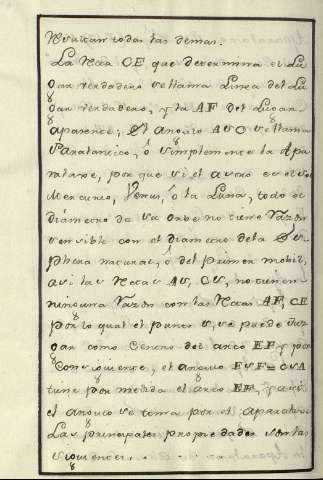 Resultan todas las demas.
La Recta CE que determina el Lu
gar verdadero se llama Linea del Lu
gar verdadero, y la AF del Lugar
aparente; El angulo ASC se llama
Paralactico, ó simplemente la Apa
ralaxe, por que si el astro es el Sol
Mercurio, Venus, ó la Luna, todo el
diámetro de su orbe no tiene Razon
sensible con el diametro dela Es
phera natural, ó del primer mobil,
asi las Rectas AS, CS, no tienen
ninguna Razon con las Rectas AF, CE
por lo qual el punto S, se puede Juz
gar como Centro del arco EF y por
Consiguiente, el angulo ESF=CSA
tiene por medida el arco EF, y asi
el angulo se toma por el Aparalaxe
Las principales propiedades son las
siguientes.